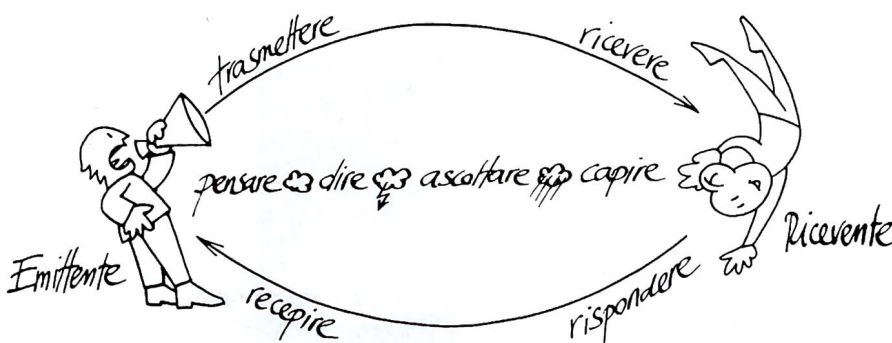 trasmettere
ricevere
pensare dire ascoltare capire
Emittente
Ricevente
recepire
rispondere